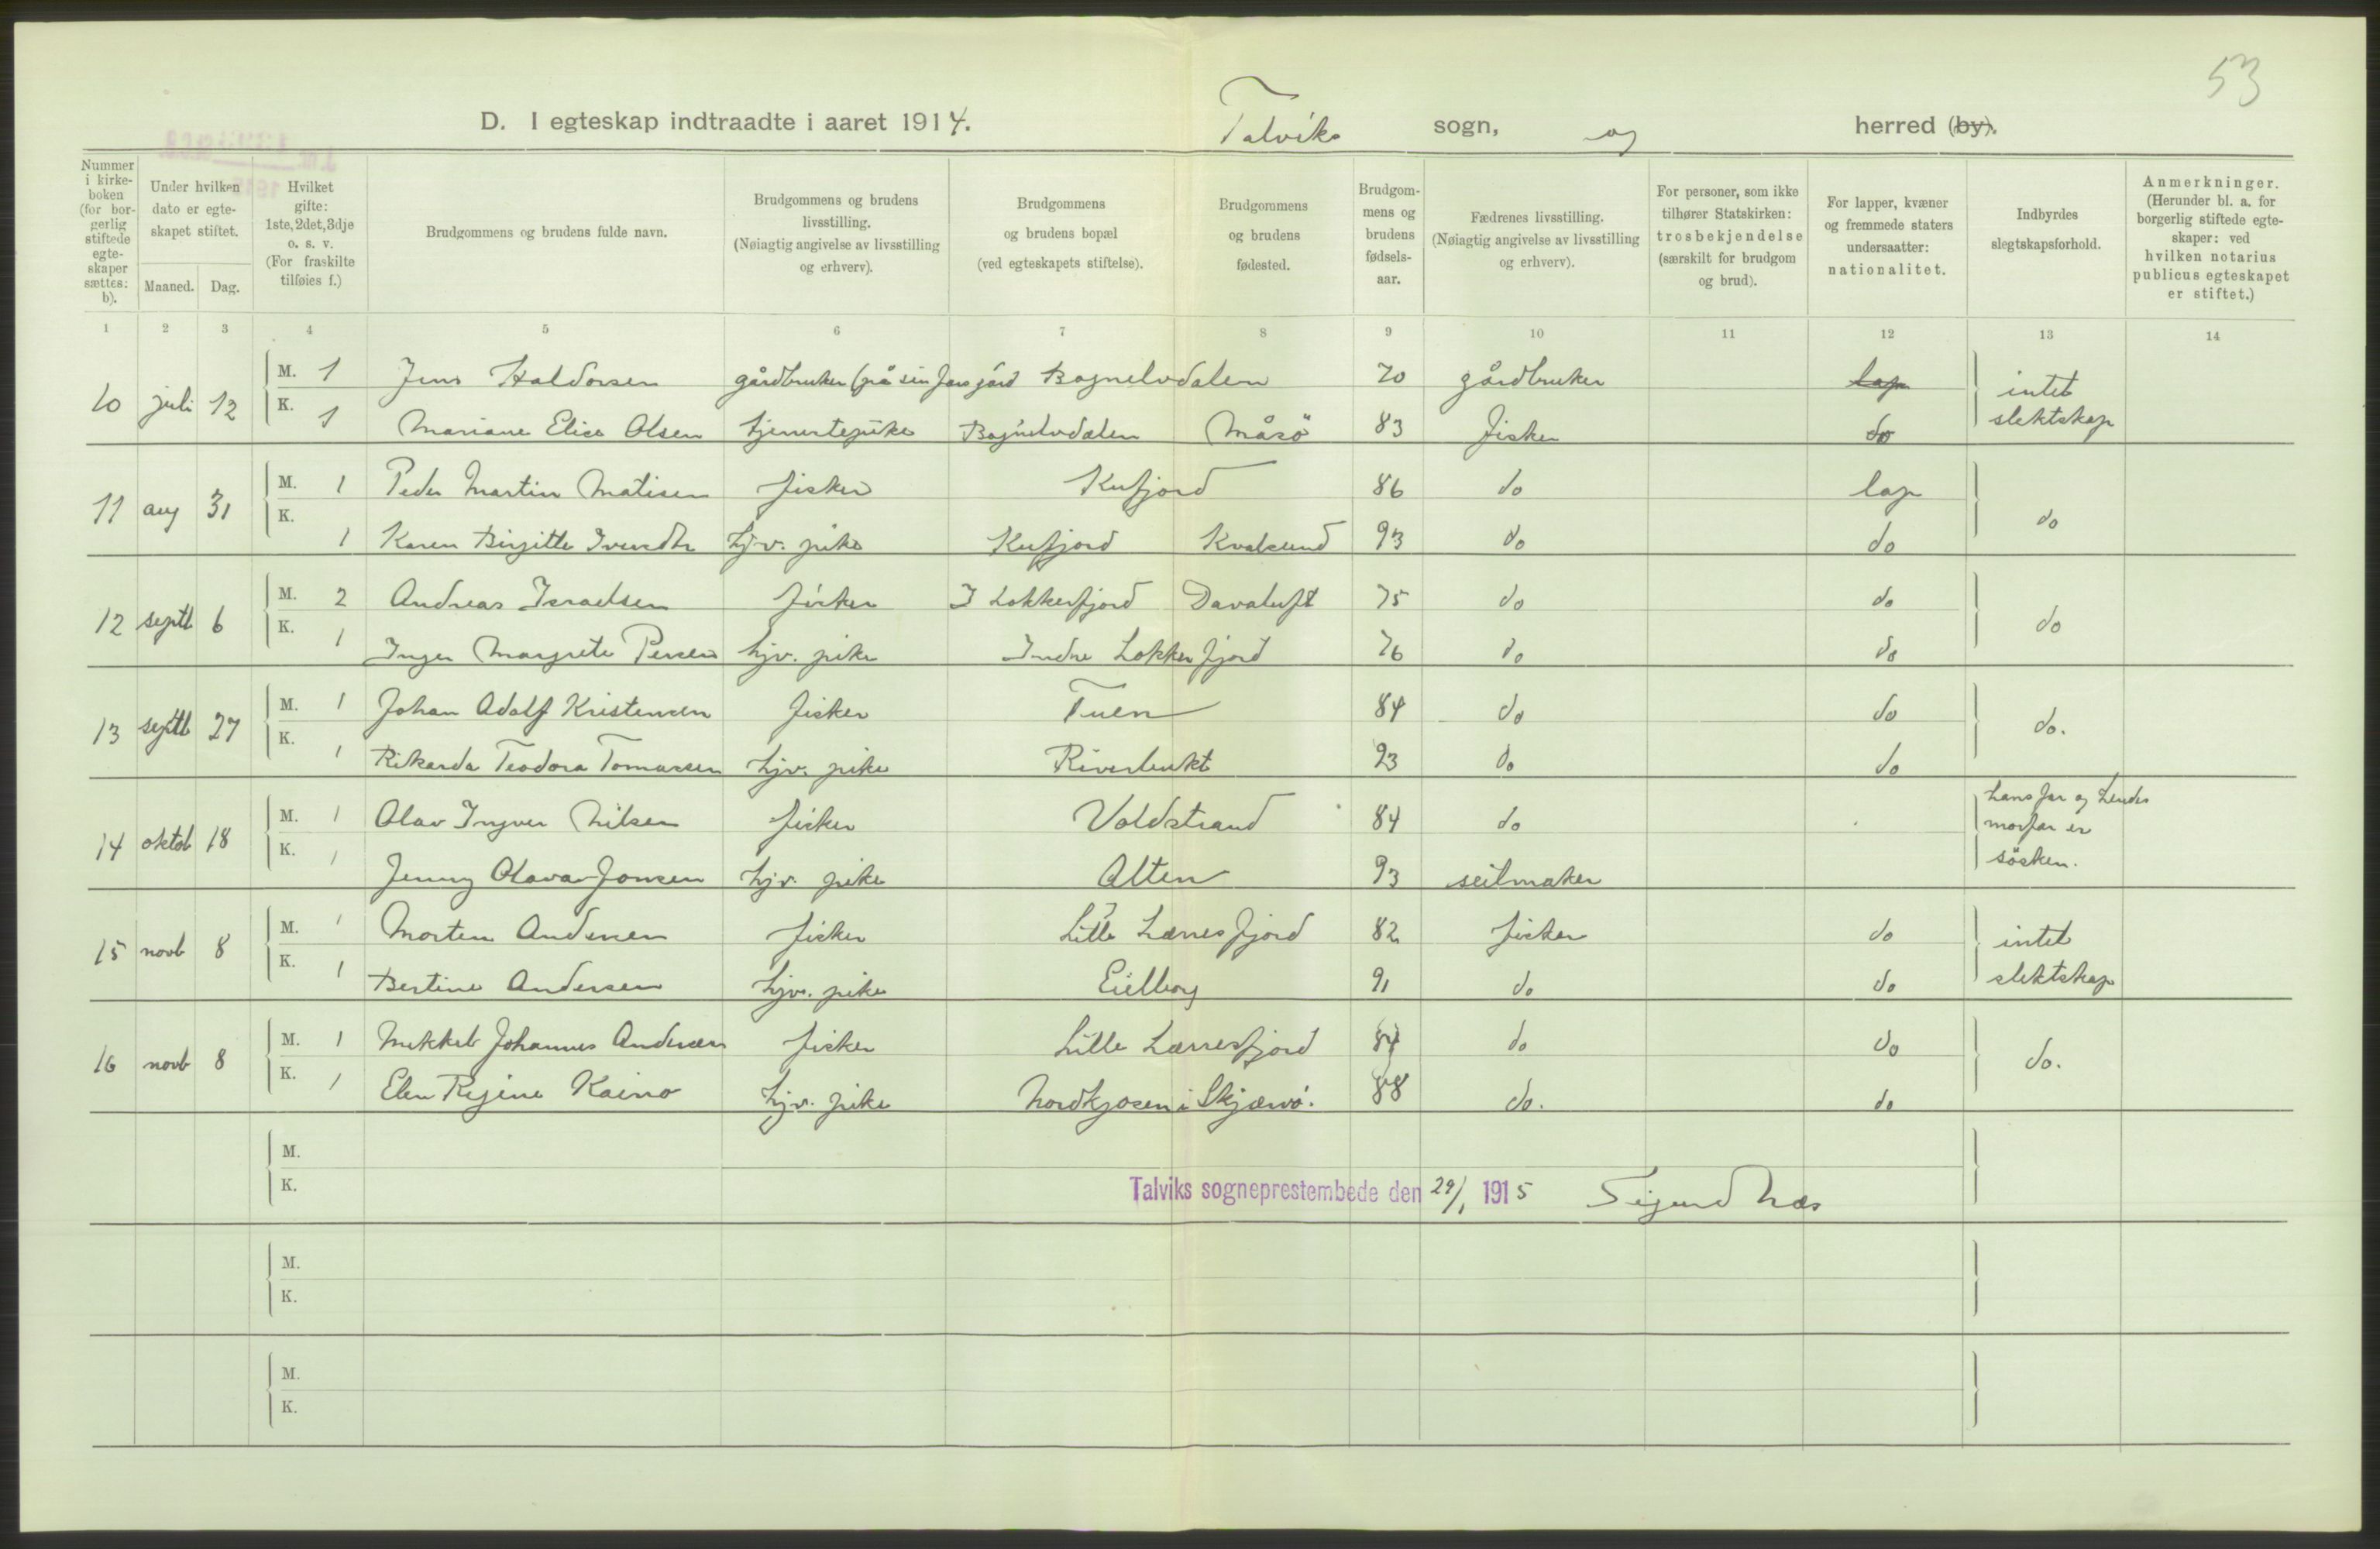 53
D. I egteskap indtraadte i aaret 1914. Talviks sogn, og herred (by).
Nummer i kirkeboken (for borgerlig stiftede egteskaper sættes: b).
Under hvilken dato er egteskapet stiftet.
Maaned. Dag.
Hvilket gifte: 1ste, 2det, 3dje o. s. v. (For fraskilte tilføies f.)
Brudgommens og brudens fulde navn.
Brudgommens og brudens livsstilling. (Nøiagtig angivelse av livsstilling og erhverv).
Brudgommens og brudens bopæl (ved egteskapets stiftelse).
Brudgommens og brudens fødested.
Brudgommens og brudens fødselsaar.
Fædrenes livsstilling. (Nøiagtig angivelse av livsstilling og erhverv).
For personer, som ikke tilhører Statskirken: trosbekjendelse (særskilt for brudgom og brud).
For lapper, kvæner og fremmede staters undersaatter: nationalitet.
Indbyrdes slegtskapsforhold.
Anmerkninger. (Herunder bl. a. for borgerlig stiftede egteskaper: ved hvilken notarius publicus egteskapet er stiftet.)
1 2 3 4 5 6 7 8 9 10 11 12 13 14
10 juli 12 M. 1 Jens Haldorsen gårdbruker (på sin fars gård Bognelvdalen 70 gårdbruker lap intet
K. 1 Mariane Elise Olsen tjenestepike Bognelvdalen Måsö 83 fisker do slektskap
11 aug 31 M. 1 Peder Martin Matisen fisker Kufjord 86 do lap do
K. 1 Karen Birgitte Iversdtr hjv. pike Kufjord Kvalsund 93 do do
12 septb 6 M. 2 Andreas Israelsen fisker I Lokkerfjord Davaluft 75 do do do
K. 1 Inger Margrete Persen hjv. pike Indre Lokkerfjord 76 do do
13 septb 27 M. 1 Johan Adolf Kristensen fisker Tuen 84 do do do.
K. 1 Rikarda Teodora Tomassen hjv. pike Riverbukt 93 do do
14 oktob 18 M. 1 Olav Ingver Nilsen fisker Voldstrand 84 do hans far og hendes morfar er
K. 1 Jenny Olava Jonsen hjv. pike Alten 93 seilmaker søsken.
15 novb 8 M. 1 Morten Andersen fisker Lille Lerresfjord 82 fisker do intet
K. 1 Bertine Andersen hjv. pike Eidborg 91 do do slektskap
16 novb 8 M. 1 Mikkel Johannes Andersen fisker Lille Lerresfjord 84 do do do.
K. 1 Elen Regine Kaino hjv. pike Nordkjosen i Skjærvö. 88 do. do
M.
K.
Talviks sogneprestembede den 29/1 1915 Sigurd Næs
M.
K.
M.
K.